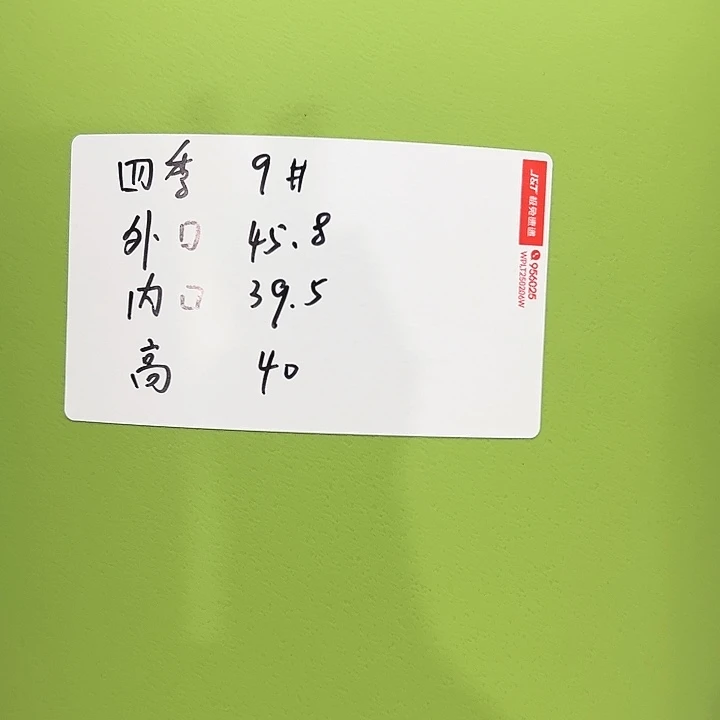 四季 9#
外口 45.8
内口 39.5
高 40
J&T 极兔速递
956025
WPLT250206W